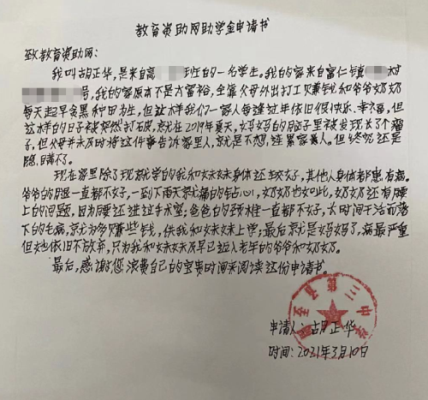 教育资助网助学金申请书
致教育资助网：
我叫胡正华，是来自高 班的一名学生。我的家来自富仁镇 村
号，我的家原本不太富裕，全靠父母外出打工只赚钱和爷爷奶奶
每天起早贪黑种田为生，但这样我们一家人每逢过年依旧很快乐、幸福，但
这样的日子被突然打破，就在2019年夏天，妈妈的脑子里被发现长了个瘤
子，但父母并未及时将这件事告诉家里人，就是不想 连累家里人。但终究还是
隐瞒不了。
现在家里除了现就学的我和妹妹身体还较好，其他人身体都患有病。
爷爷的腿一直都不好，一到下雨天就痛的钻心，奶奶也如此，奶奶还有腰
上的问题，因为腰还进过手术室，爸爸的颈椎一直都不好，长时间干活而落
下的毛病，就为多赚些钱，供我和妹妹上学；最后就是妈妈了，病最严重
但她依旧不放弃，只为我和妹妹及早已经入老年的爷爷和奶奶。
最后，感谢您浪费自己的宝贵时间来阅读这份申请书。
申请人：胡正华
时间：2021年3月10日
第三中